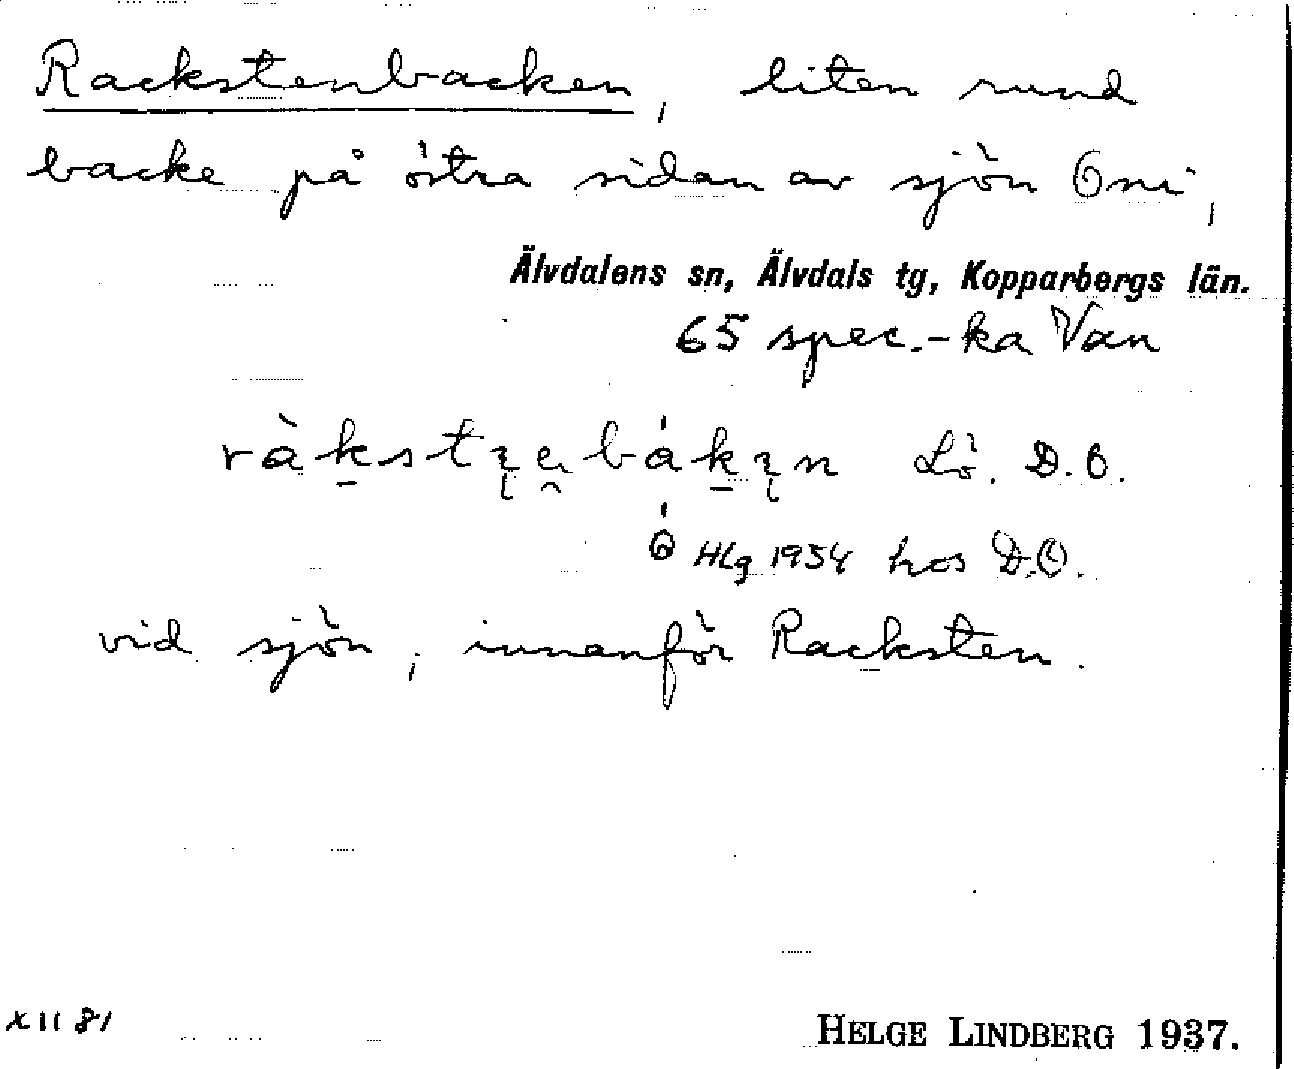 Rackstenbacken, liten rund
backe på östra sidan av sjön Osni,
Älvdalens sn, Älvdals tg, Kopparbergs län.
65 spec.-ka Van
D.O.
Hlg 1954 hos D.O.
vid sjön, innanför Racksten.
XII 81
HELGE LINDBERG 1937.